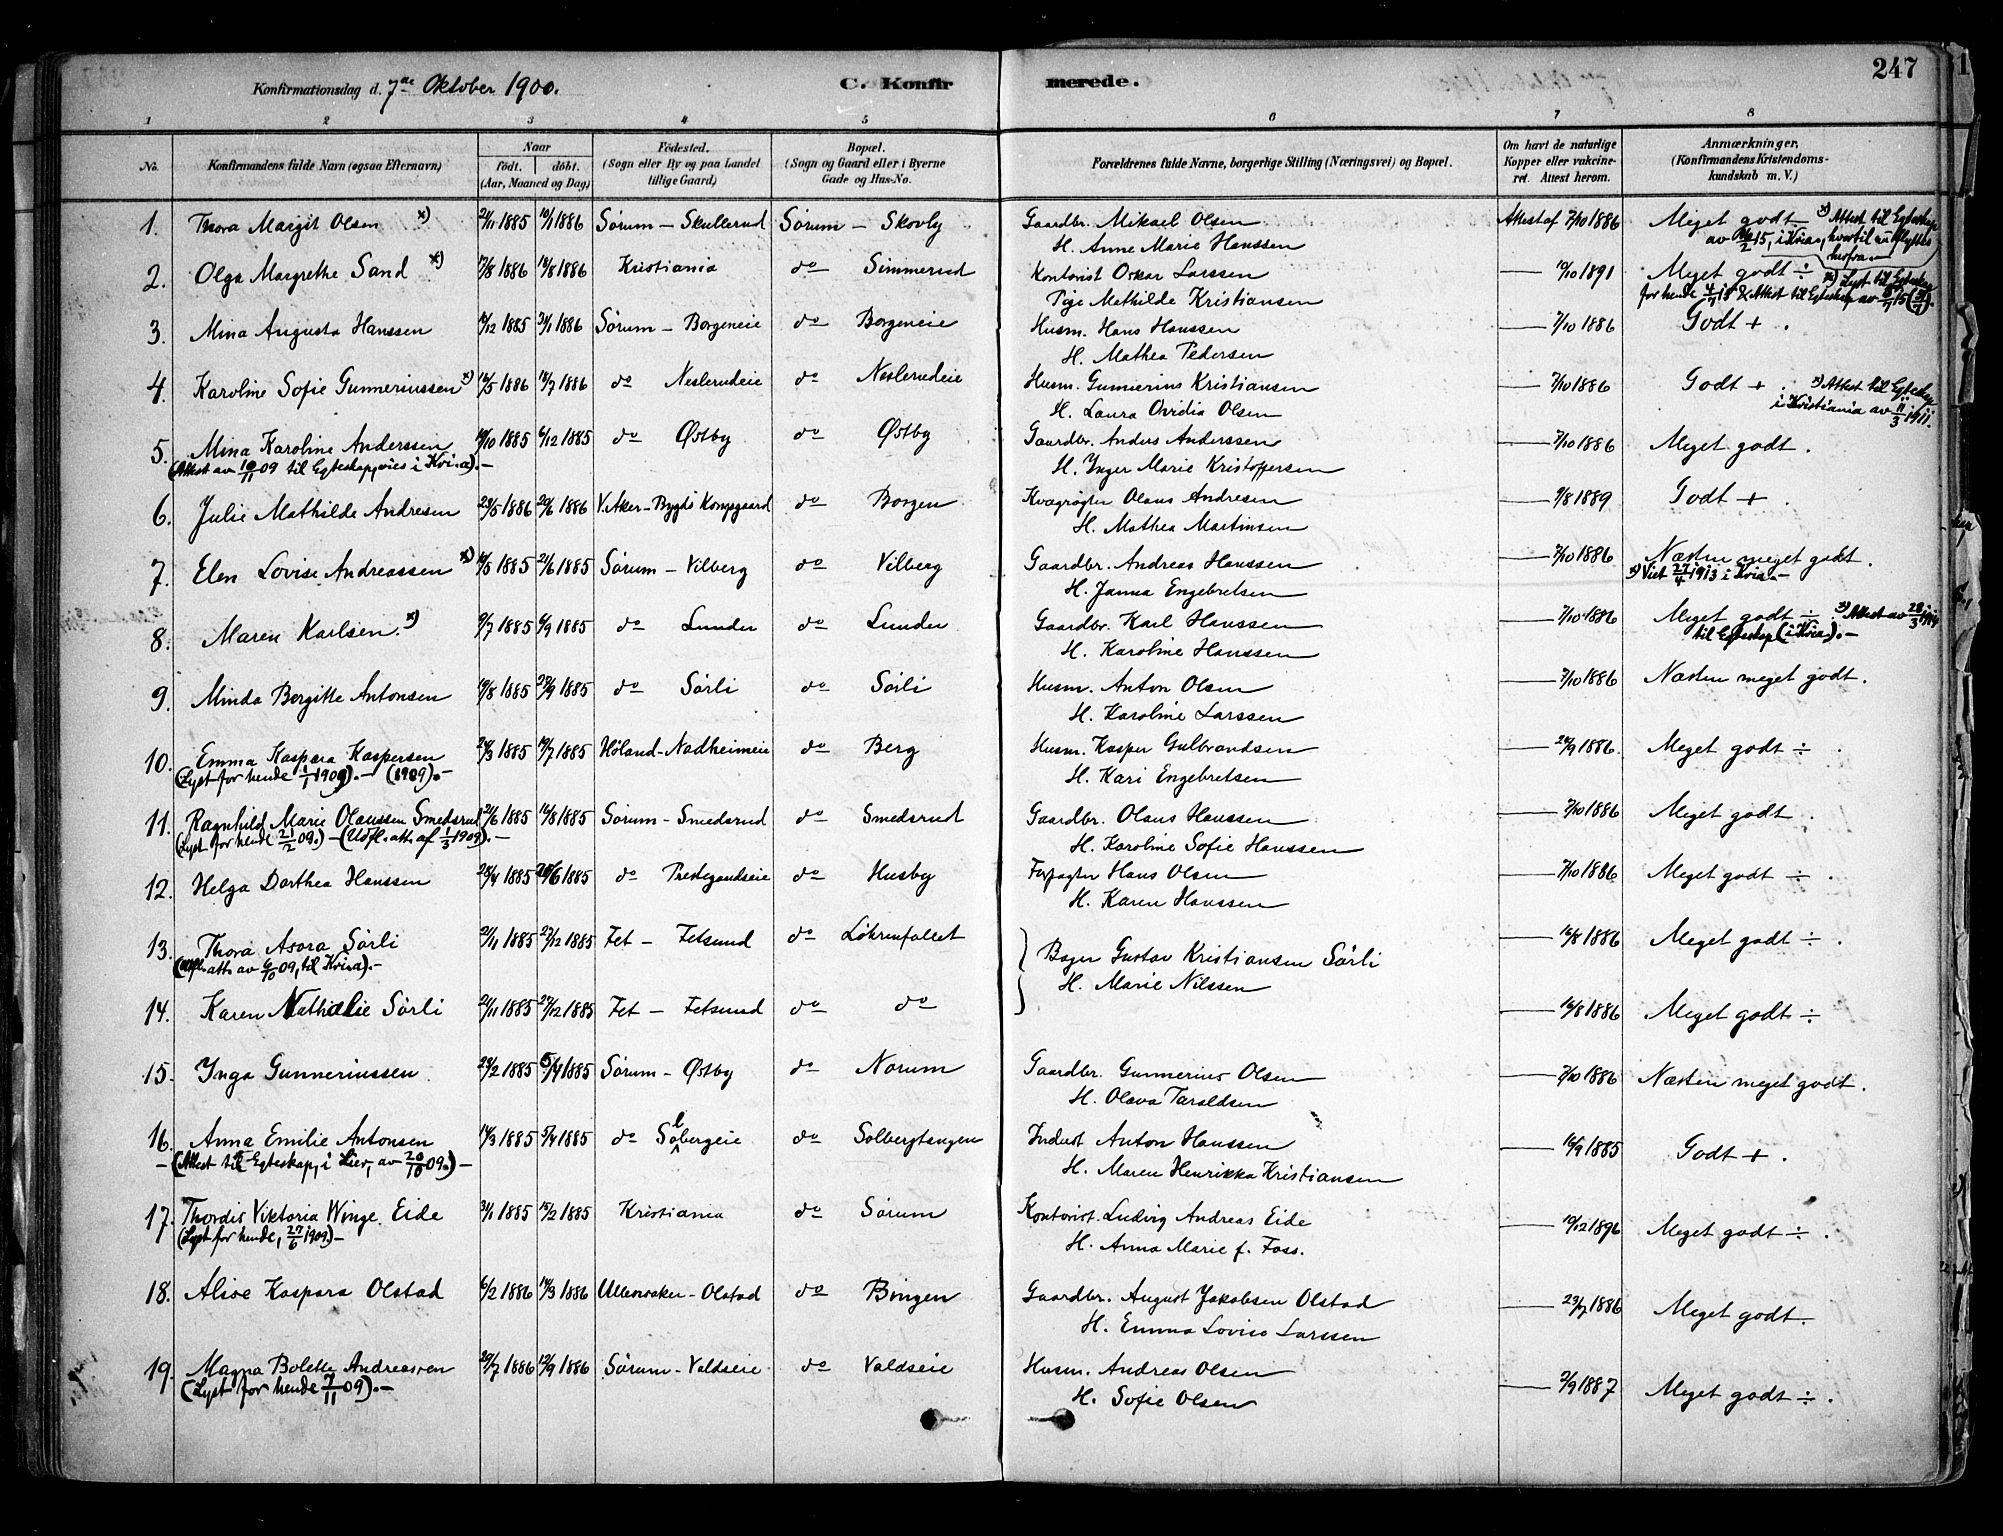 247
Konfirmationsdag d. 7de Oktober 1900. C. Konfirmerede.
1 2 3 4 5 6 7 8
No. Konfirmandens fulde Navn (ogsaa Efternavn) Naar født. døbt. (Aar, Maaned og Dag) Fødested. (Sogn eller By og paa Landet tillige Gaard) Bopæl. (Sogn og Gaard eller i Byerne Gade og Hus-No. Forældrenes fulde Navne, borgerlige Stilling (Næringsvei) og Bopæl. Om havt de naturlige Kopper eller vaccineret. Attest herom. Anmærkninger, (Konfirmandens Kristendomskundskab m. V.)
1. Thora Margit Olsen x) 1885 1886 Sørum – Skullerud Sørum – Skovly Gaardbr. Mikael Olsen Attest af 7/10 1886 Meget godt x) Attest til Egteskap
H. Anne Marie Hanssen
2. Olga Margrethe Sand x) 1886 1886 Kristiania do Simmerud Kontorist Oskar Larssen 1891 Meget godt ÷
Pige Mathilde Kristiansen
3. Mina Augusta Hanssen 1885 1886 Sørum – Borgeneie do Borgeneie Husm. Hans Hanssen 7/10 1886 Godt + .
H. Mathea Pedersen
4. Karoline Sofie Gunneriussen x) 1886 1886 do Neslerudeie do Neslerudeie Husm. Gunnerius Kristiansen 7/10 1886 Godt + . x) Attest til Egteskap
H. Laura Ovidia Olsen i Kristiania av 11/3 1911.
5. Mina Karoline Anderssen 1885 6/12 1885 do Østby do Østby Gaardbr. Anders Anderssen 7/10 1886 Meget godt .
(Attest av 10/11 09 til Egteskap, vies i Kr.ia). – H. Inger Marie Kristoffersen
6. Julie Mathilde Andresen 23/5 1886 20/6 1886 V. Aker – Bygdø Kongsgaard do Borgen Kvægrøgter Olaus Andresen 9/8 1889 Godt + .
H. Mathea Martinsen
7. Elen Lovise Andreassen x) 1885 21/6 1885 Sørum – Vilberg do Vilberg Gaardbr. Andreas Hanssen 7/10 1886 Næsten meget godt .
H. Janna Engebretsen x) Viet 27/4 1913 i Kr.ia. –
8. Maren Karlsen. x) 9/7 1885 6/9 1885 do Lunder do Lunder Gaardbr. Karl Hanssen 7/10 1886 Meget godt ÷ . x) Attest av 28/3 1914
H. Karoline Hanssen til Egteskap (i Kr.ia). –
9. Minda Bergitte Antonsen 1885 1885 do Sørli do Sørli Husm. Anton Olsen 7/10 1886 Næsten meget godt .
H. Karoline Larssen
10. Emma Kaspara Kaspersen 1885 19/7 1885 Høland – Nadheimeie do Berg Husm. Kasper Gulbrandsen 1886. Meget godt ÷ .
(Lyst for hende 1/1 1909). – (1909). – H. Kari Engebretsen
11. Ragnhild Marie Olaussen Smedsrud 21/6 1885 16/8 1885 Sørum – Smedsrud do Smedsrud Gaardbr. Olaus Hanssen 7/10 1886 Meget godt .
(Lyst for hende 21/2 09.) – (Udfl. att. af 1/3 1909). – H. Karoline Sofie Hanssen
12. Helga Dorthea Hanssen 1885 1885 do Prestegaardseie do Husby Forpagter Hans Olsen 7/10 1886 Meget godt ÷ .
H. Karen Hanssen
13. Thora Asora Sørli 21/11 1885 27/12 1885 Fet – Fetsund do Løkrenfallet Bager Gustav Kristiansen Sørli 16/8 1886 Meget godt ÷ .
til Kr.ia). – H. Marie Nilssen
14. Karen Nathalie Sørli 21/11 1885 27/12 1885 Fet – Fetsund do do 16/8 1886 Meget godt ÷
15. Inga Gunneriussen 1885 5/4 1885 Sørum – Østby do Norum Gaardbr. Gunnerius Olsen 7/10 1886 Næsten meget godt .
H. Olava Taraldsen
16. Anna Emilie Antonsen 14/3 1885 5/4 1885 do Solbergeie do Solbergtangen Inderst Anton Hanssen 1885 Godt + .
– (Attest til Egteskap, i Lier, av 20/10 09.) – H. Maren Henrikka Kristiansen
17. Thordis Viktoria Winge Eide 31/1 1885 15/2 1885 Kristiania do Sørum Kontorist. Ludvig Andreas Eide 19/12 1896 Meget godt ÷ .
(Lyst for hende, 27/6 1909) – H. Anna Marie f. Foss.
18. Alise Kaspara Olstad 6/2 1886 14/3 1886 Ullensaker – Olstad do Bingen Gaardbr. August Jakobsen Olstad 1886 Meget godt.
H. Emma Lovise Larssen
19. Magna Bolette Andreassen 20/7 1886 12/9 1886 Sørum – Valdseie do Valdseie Husm. Andreas Olsen 2/9 1887 Meget godt ÷ .
(Lyst for hende 7/11 09). – H. Sofie Olsen